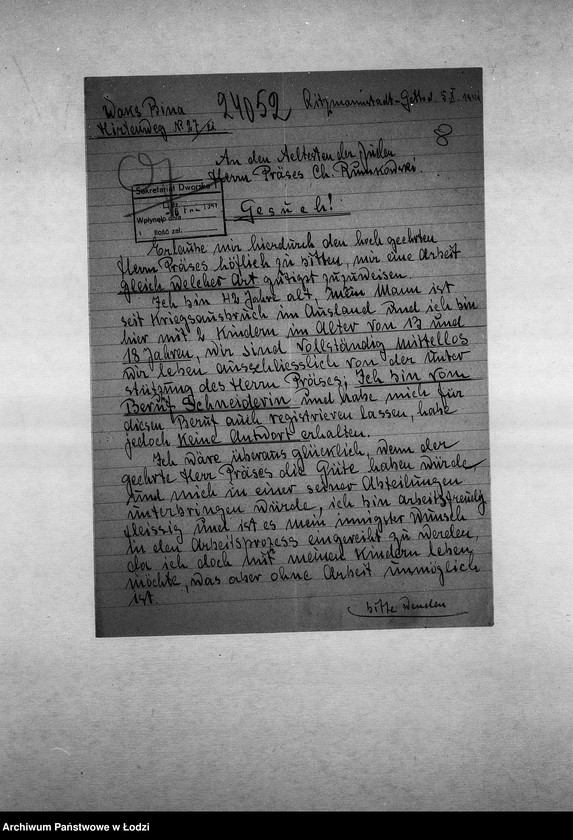 Waks Bina
24052
Litzmannstadt-Getto d. 5.
Hirtenweg № 27/
An den Aeltesten der Juden
Herrn Präses Ch. Rumkowski.
Sekretariat Dworska 1
Wpłynęło dnia
Ilość zał.
Gesuch!
Erlaube mir hierdurch den hoch geehrten
Herrn Präses höflich zu bitten, mir eine Arbeit
gleich welcher Art gütigst zuzuweisen.
Ich bin 42 Jahre alt, mein Mann ist
seit Kriegsausbruch im Ausland und ich bin
hier mit 2 Kindern im Alter von 13 und
18 Jahren, wir sind vollständig mittellos
wir leben ausschliesslich von der Unter
stützung des Herrn Präses; Ich bin vom
Beruf Schneiderin und habe mich für
diesen Beruf auch registrieren lassen, habe
jedoch keine Antwort erhalten.
Ich wäre überaus glücklich, wenn der
geehrte Herr Präses die Güte haben würde
und mich in einer seiner Abteilungen
unterbringen würde, ich bin arbeitsfreudig
fleissig und ist es mein innigster Wunsch
in den Arbeitsprozess eingereiht zu werden,
da ich doch mit meinen Kindern leben
möchte, was aber ohne Arbeit unmöglich
ist.
bitte wenden
Archiwum Państwowe w Łodzi